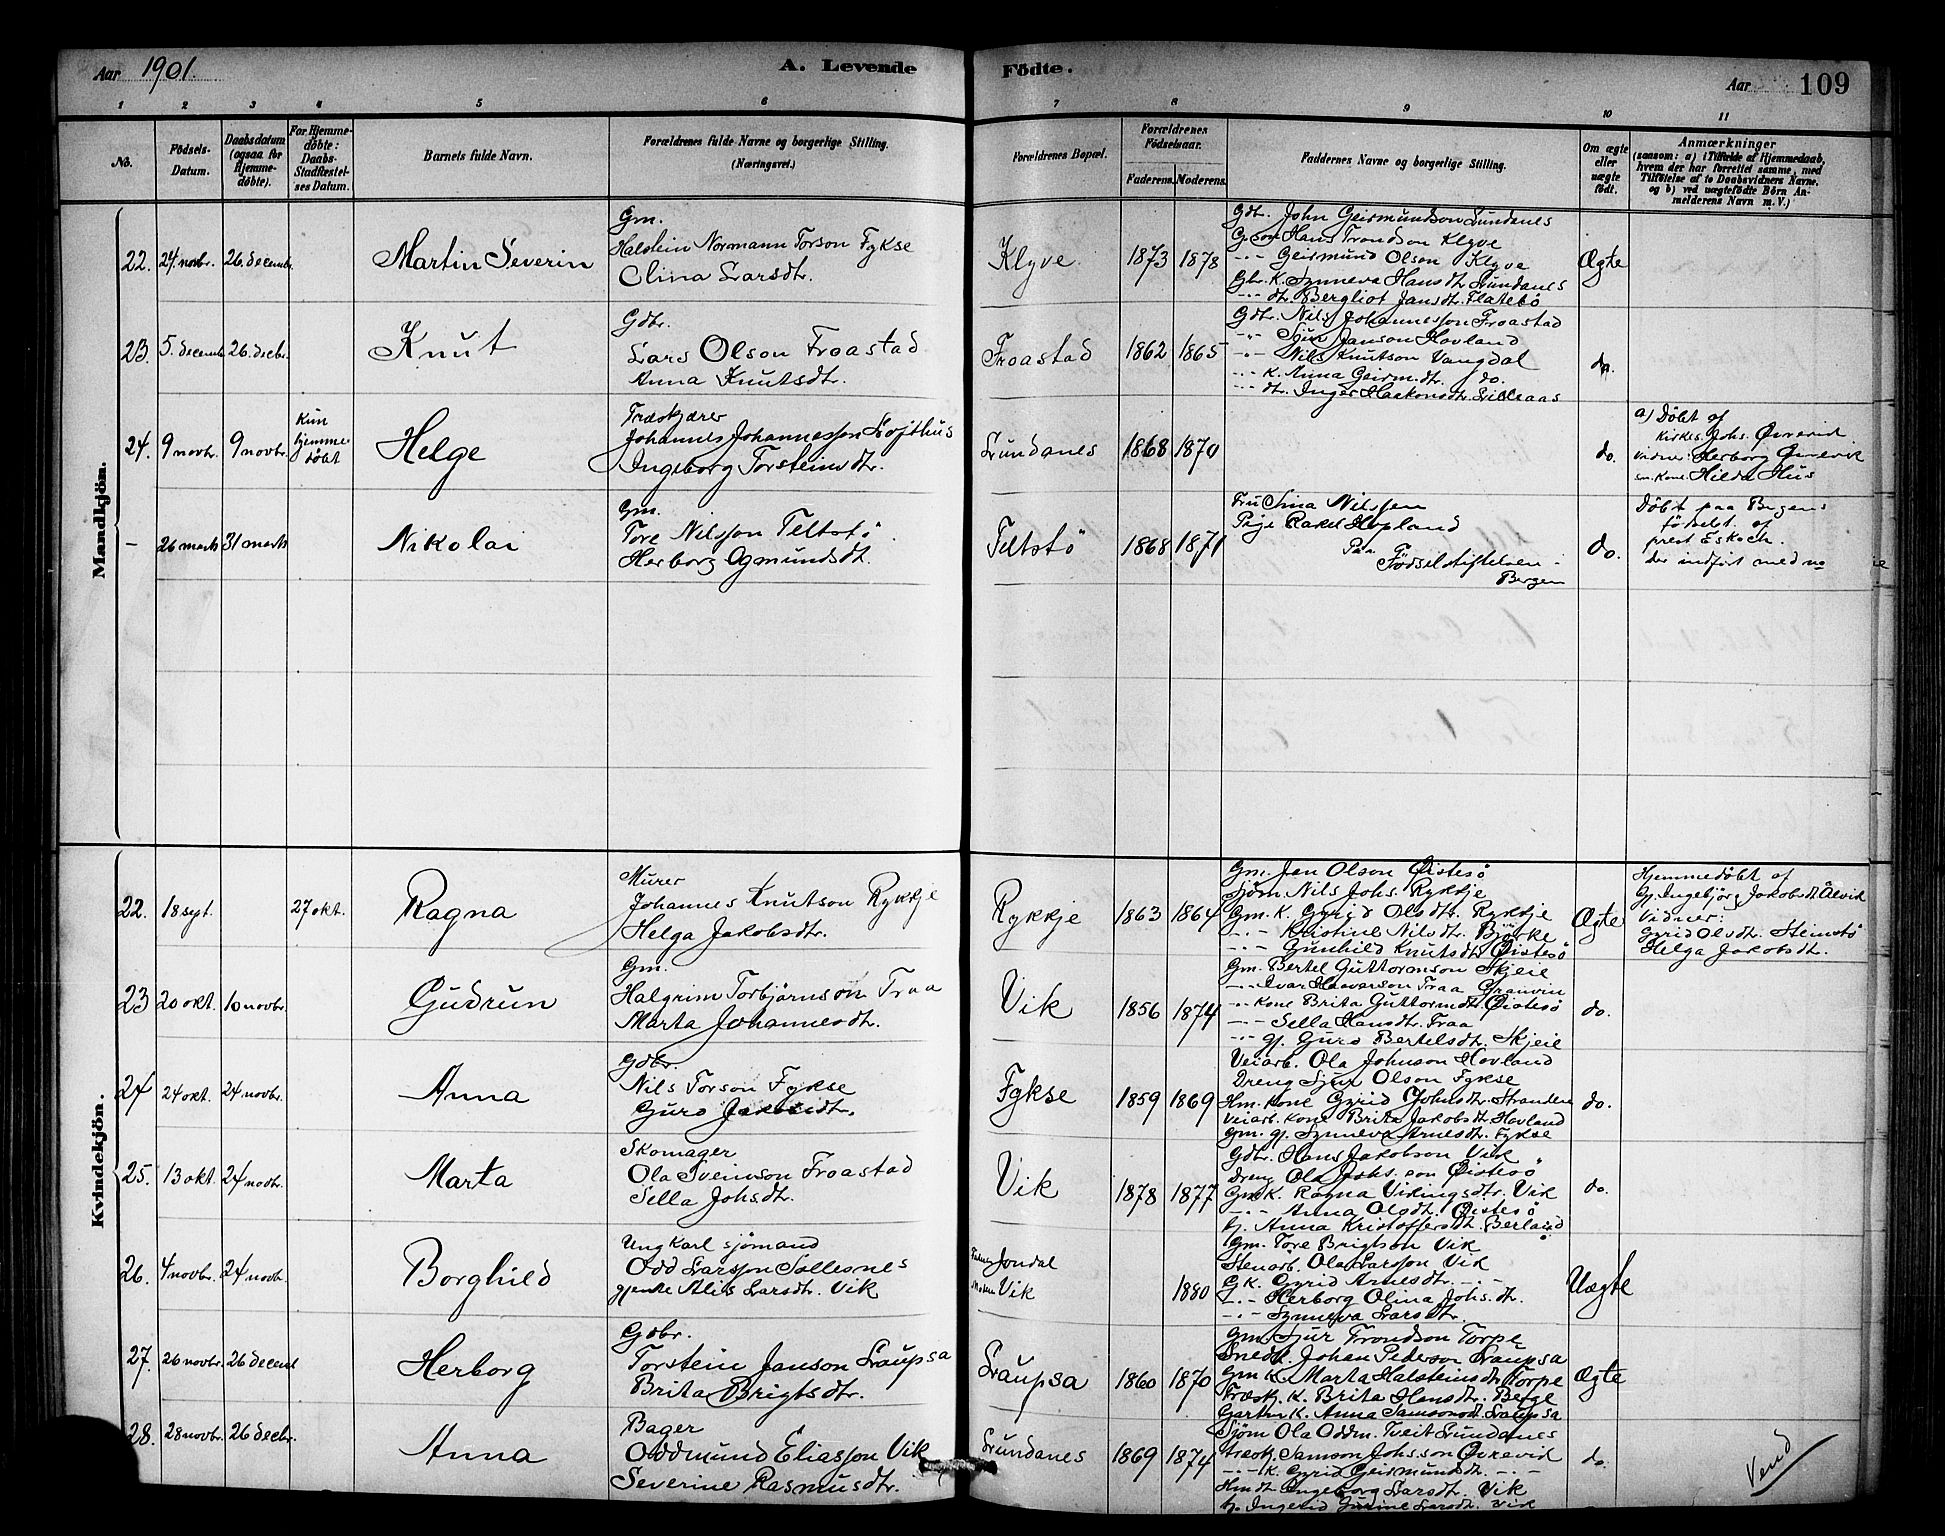 Aar 1901. A. Levende Födte. Aar 109
1 2 3 4 5 6 7 8 9 10 11
No. Födsels-Datum. Daabsdatum (ogsaa for Hjemme-döbte). For Hjemme-döbte: Daabs-Stadfæstel-ses Datum. Barnets fulde Navn. Forældrenes fulde Navne og borgerlige Stilling. (Næringsvei.) Forældrenes Bopæl. Forældrenes Födselsaar. Faderens. Moderens. Faddernes Navne og borgerlige Stilling. Om ægte eller uægte födt. Anmærkninger
(saasom: a) i Tilfælde af Hjemmedaab,
hvem der har forrettet samme, med
Tilföielse af to Daabsvidners Navne,
og b) ved uægtefödte Börn An-
melderens Navn m. V.)
Mandkjön.
22. 24 novbr. 26. decembr. Martin Severin
Gm.
Halstein Normann Torson Fykse
Olina Larsdtr.
Klyve 1873 1878
Gdbr. John Geirmundson Lundanes
Gm. son Hans Trondson Klyve
-"- Geirmund Olson Klyve
Gbr. K. Synneva Hansdtr. Lundanes
-"- dt. Bergliot Jansdtr. Flatebö
Ægte
23. 5. decemb 26. decbr. Knut
Gdbr.
Lars Olson Froastad
Anna Knutsdtr.
Froastad 1862 1865
Gdbr. Nils Johannesson Froastad
-"- Sjur Janson Hovland
-"- Nils Knutson Vangdal
-"- K. Anna Geirm.dtr. do.
-"- dt. Inger Haakonsdtr. Lilleaas
do.
24. 9 novbr. 9 novbr. Kun
hjemme
döbt
Helge
Træskjærer
Johannes Johannesson Lofthus
Ingeborg Torsteinsdtr.
Lundanes 1868 1870
do.
a) Döbt af
Kirkes. Johs. Övrevid
Vidner: Herborg Övrevik
sm. kone Hilda Hus
- 26 marts 31 marts Nikolai
Gm.
Tore Nilsson Teltstö
Herborg Ogmundsdt.
Teltstö 1868 1871
Fru Sina Nilssen
Pige Rakel Hopland
Paa Födselstiftelsen
Bergen
do.
Döbt paa Bergens
födselst. af
prest Eskoch.
der indfört med no
Kvindekjön.
22. 18 sept. 27 okt. Ragna
Murer
Johannes Knutson Rykkje
Helga Jakobsdtr.
Rykkje 1863 1864
Gm. Jan Olson Öistesö
Sjöm. Nils Johs. Rykkje
Gm. K. Gyrid Olsdtr. Rykkje
-"- Kristine Nilsdtr. Björke
-"- Gunhild Knutsdtr. Öistesö
Ægte
Hjemmedöbt af
Gj. Ingebjörg Jakobsdt. Ålvik
Vidner:
Gyrid Olsdtr. Steinstö
Helga Jakobsdt.
23 20 okt. 10 novbr. Gudrun
Gm.
Halgrim Torbjörnson Traa
Marta Johannesdtr.
Vik 1856 1874
Gm. Bertel Guttormson Skjeie
-"- Ivar Haavarson Traa Granvin
-"- Kone Brita Guttormsdt. Öistesö
-"- Sella Hansdtr. Traa
-"- gj. Guro Bertelsdt. Skjeie
do.
24 24 okt. 24 novbr. Anna
Gdbr.
Nils Torson Fykse
Guro Jakobsdt.
Fykse 1859 1869
Veiarb. Ola Johnson Hovland
Dreng Sjur Olson Fykse
Hm. Kone Gyrid Johnsdtr. Stranden
Veiarb. Kone Brita Jakobsdt. Hovland
Gm. gj. Synneva Arnesdtr. Fykse
do.
25. 13 okt. 24 novbr. Marta
Skomager
Ola Sveinson Froastad
Sella Johsdt.
Vik 1878 1877
Gdbr. Hans Jakobson Vik
Dreng Ola Johs. son Öistesö
Gm K. Ragna Vikingsdtr. Vik
-"- Anna Olsdt. Öistesö
Gj. Anna Kristoffersdt. Berland
do.
26. 4 novbr. 24 novbr. Borghild
Ungkarl sjömand
Odd Larsson Sollesnes
gjente Alis Larsdtr. Vik
Faderen Jondal
Moderen Vik
1880
Gm. Tore Brigtson Vik
Stenarb. Ola Larsson Vik
G K. Gyrid Arnesdtr. -"-
-"- Herborg Olina Johs.dt.
-"- Synneva Larsdt.
Uægte
27. 26 novbr. 26 decemb Herborg
Gdbr.
Torstein Janson Laupsa
Brita Brigtsdtr.
Laupsa 1860 1870
Gm. Sjur Trondson Torpe
Snedk. Johan Pederson Laupsa
Gm K. Marta Halsteinsdtr. Torpe
Træsk. K. Brita Hansdt. Berge
Gartn K. Anna Samsonsdt. Laupsa
Ægte
28. 28 novbr. 26 decbr. Anna
Bager
Oddmund Eliasson Vik
Severine Rasmusdtr.
Lundanes 1869 1874
Sjöm Ola Oddm. Tveit Lundanes
træsk. Samson Johs.son Övrevid
-"- K. Gyrid Geirmundsdt. -"-
Hmdt Ingeborg Larsdt. Vik
gj. Ingerid Gurine Larsdt. Vik
do.
Vend